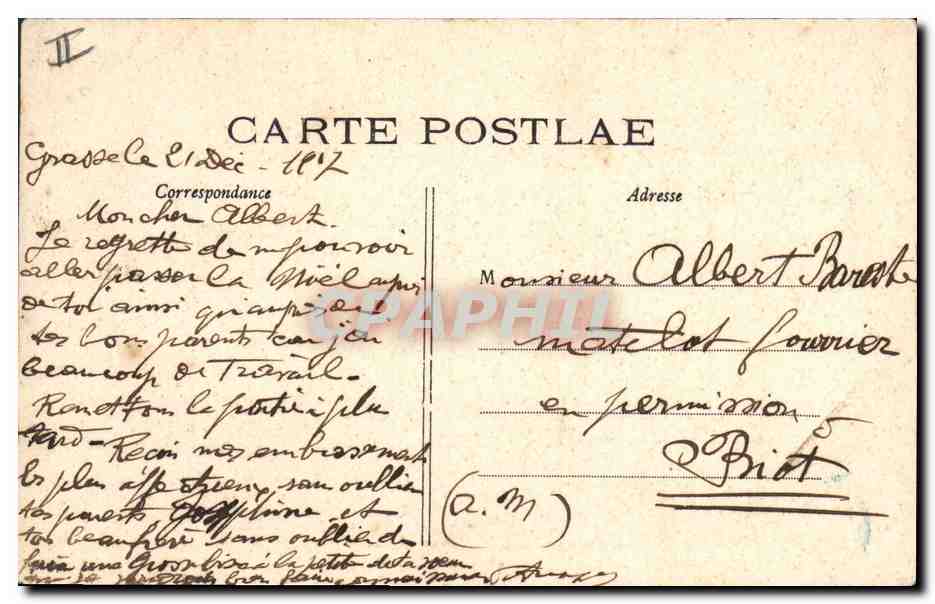 II
CARTE POSTLAE
Grasse le 21 Déc - 1917
Correspondance
Adresse
Mon cher Albert.
Je regrette de ne pouvoir
aller passer la Noël auprès
de toi ainsi qu'auprès de
tes bons parents car j'ai
beaucoup de Travail -
Remettons la partie à plus
tard - Reçois mes embrassements
les plus affectueux sans oublier
tes parents Joséphine et
ton beau frère sans oublier de
faire une Grosse bise à la petite de ta soeur
bien faire
Monsieur Albert Bareste
matelot fourrier
en permission
Biot
(A. M)
CPAPHIL